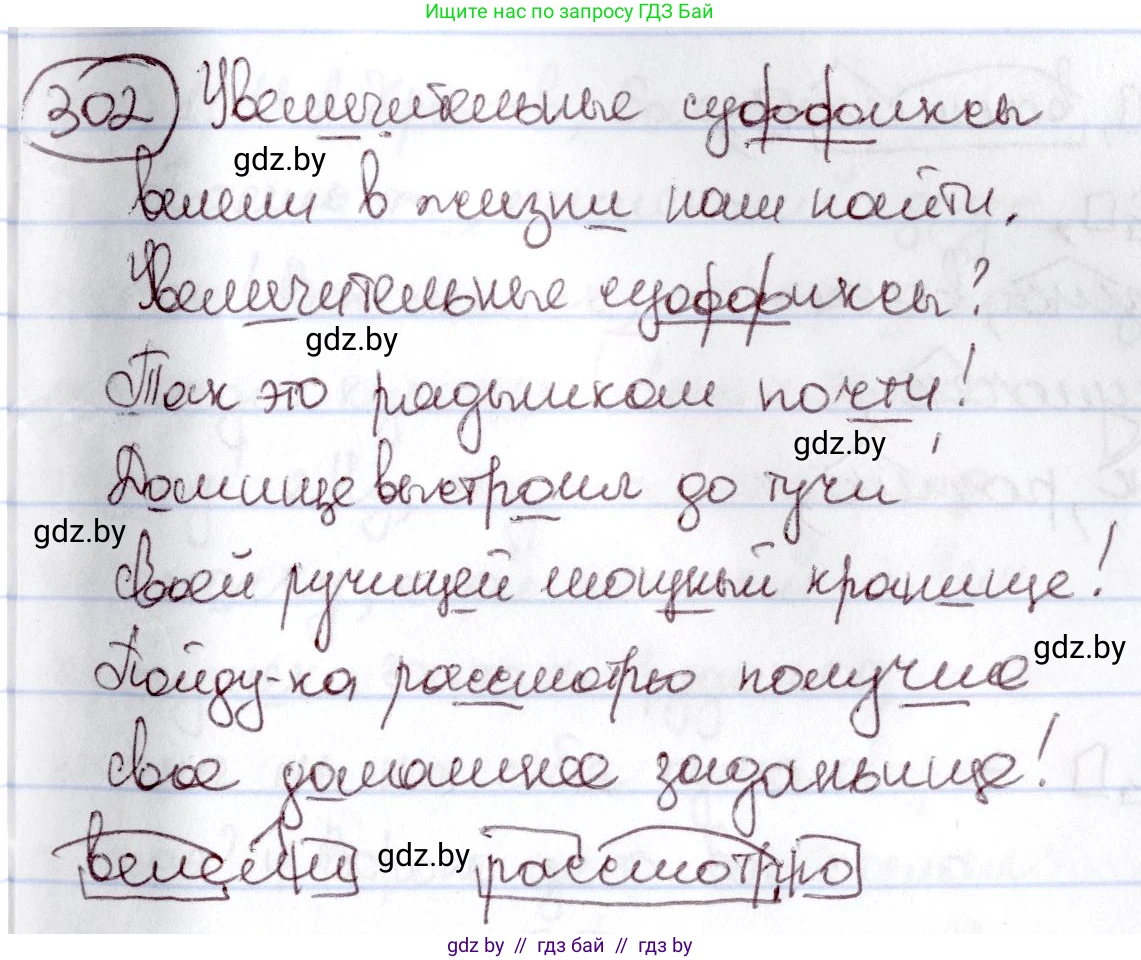 Ищите нас по запросу ГДЗ Бай
302 Увеличительные суффиксы
gdz.by
велели в жизни нам найти.
Увеличительные суффиксы?
gdz.by
Так это рядышком почти!
gdz.by
Домище выстроил до тучи
gdz.by
Своей ручищей мощный кранище!
gdz.by
Пойду-ка рассмотрю получше
свое домашнее заданьище!
велели gdz.by рассмотрю
gdz by // гдз бай // гдз by